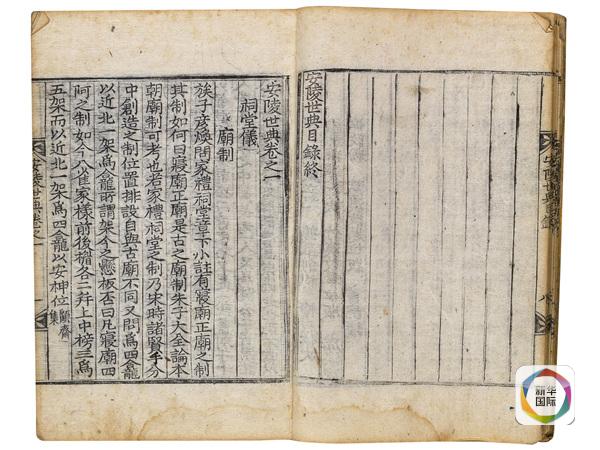 安陵世典目錄
安陵世典目錄終
安陵世典卷之一
祠堂儀
廟制
族子彥煥問家禮祠堂章下小註有寢廟正廟之制
其制如何曰寢廟正廟是古之廟制朱子大全論本
朝廟制可考也若家禮祠堂之制乃宋時諸賢手分
中創造之制位置排設自與古廟不同又問爲四龕
以近北一架爲龕所謂架今之懸板否曰凡寢廟四
阿之制如今八雀家樣前後楹各二幷上中榜三爲
五架而以近北一架爲四龕以安神位 齋集
安陵世典卷之一 一
新华
国际